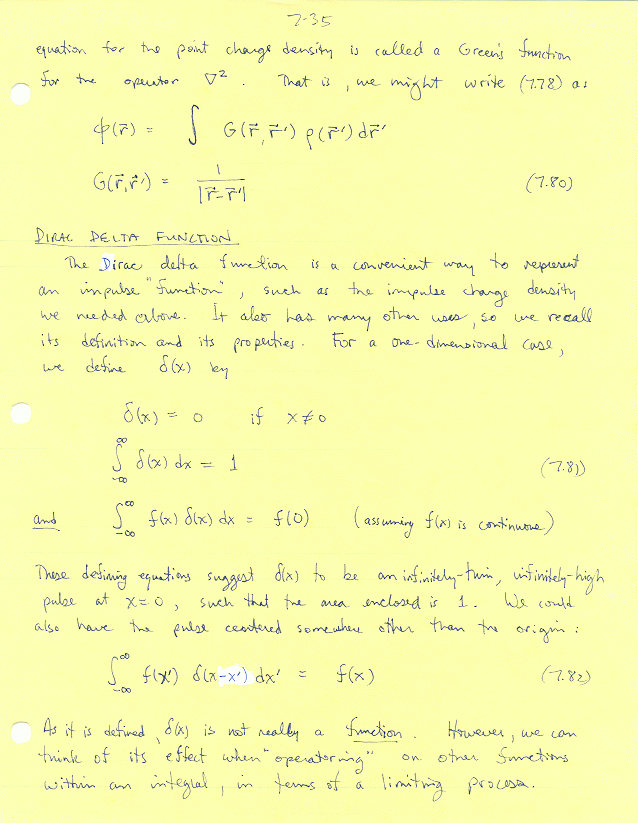 7-35
equation for the point charge density is called a Green's function
for the operator ∇². That is, we might write (7.78) as
φ(r⃗) = ∫ G(r⃗, r⃗′) ρ(r⃗′) dr⃗′
G(r⃗, r⃗′) = 1 / |r⃗ - r⃗′| (7.80)
DIRAC DELTA FUNCTION
The Dirac delta function is a convenient way to represent
an impulse "function", such as the impulse charge density
we needed above. It also has many other uses, so we recall
its definition and its properties. For a one-dimensional case,
we define δ(x) by
δ(x) = 0 if x ≠ 0
∫_{-∞}^{∞} δ(x) dx = 1 (7.81)
and ∫_{-∞}^{∞} f(x) δ(x) dx = f(0) (assuming f(x) is continuous)
These defining equations suggest δ(x) to be an infinitely-thin, infinitely-high
pulse at x = 0, such that the area enclosed is 1. We could
also have the pulse centered somewhere other than the origin:
∫_{-∞}^{∞} f(x′) δ(x-x′) dx′ = f(x) (7.82)
As it is defined, δ(x) is not really a function. However, we can
think of its effect when "operatoring" on other functions
within an integral, in terms of a limiting process.